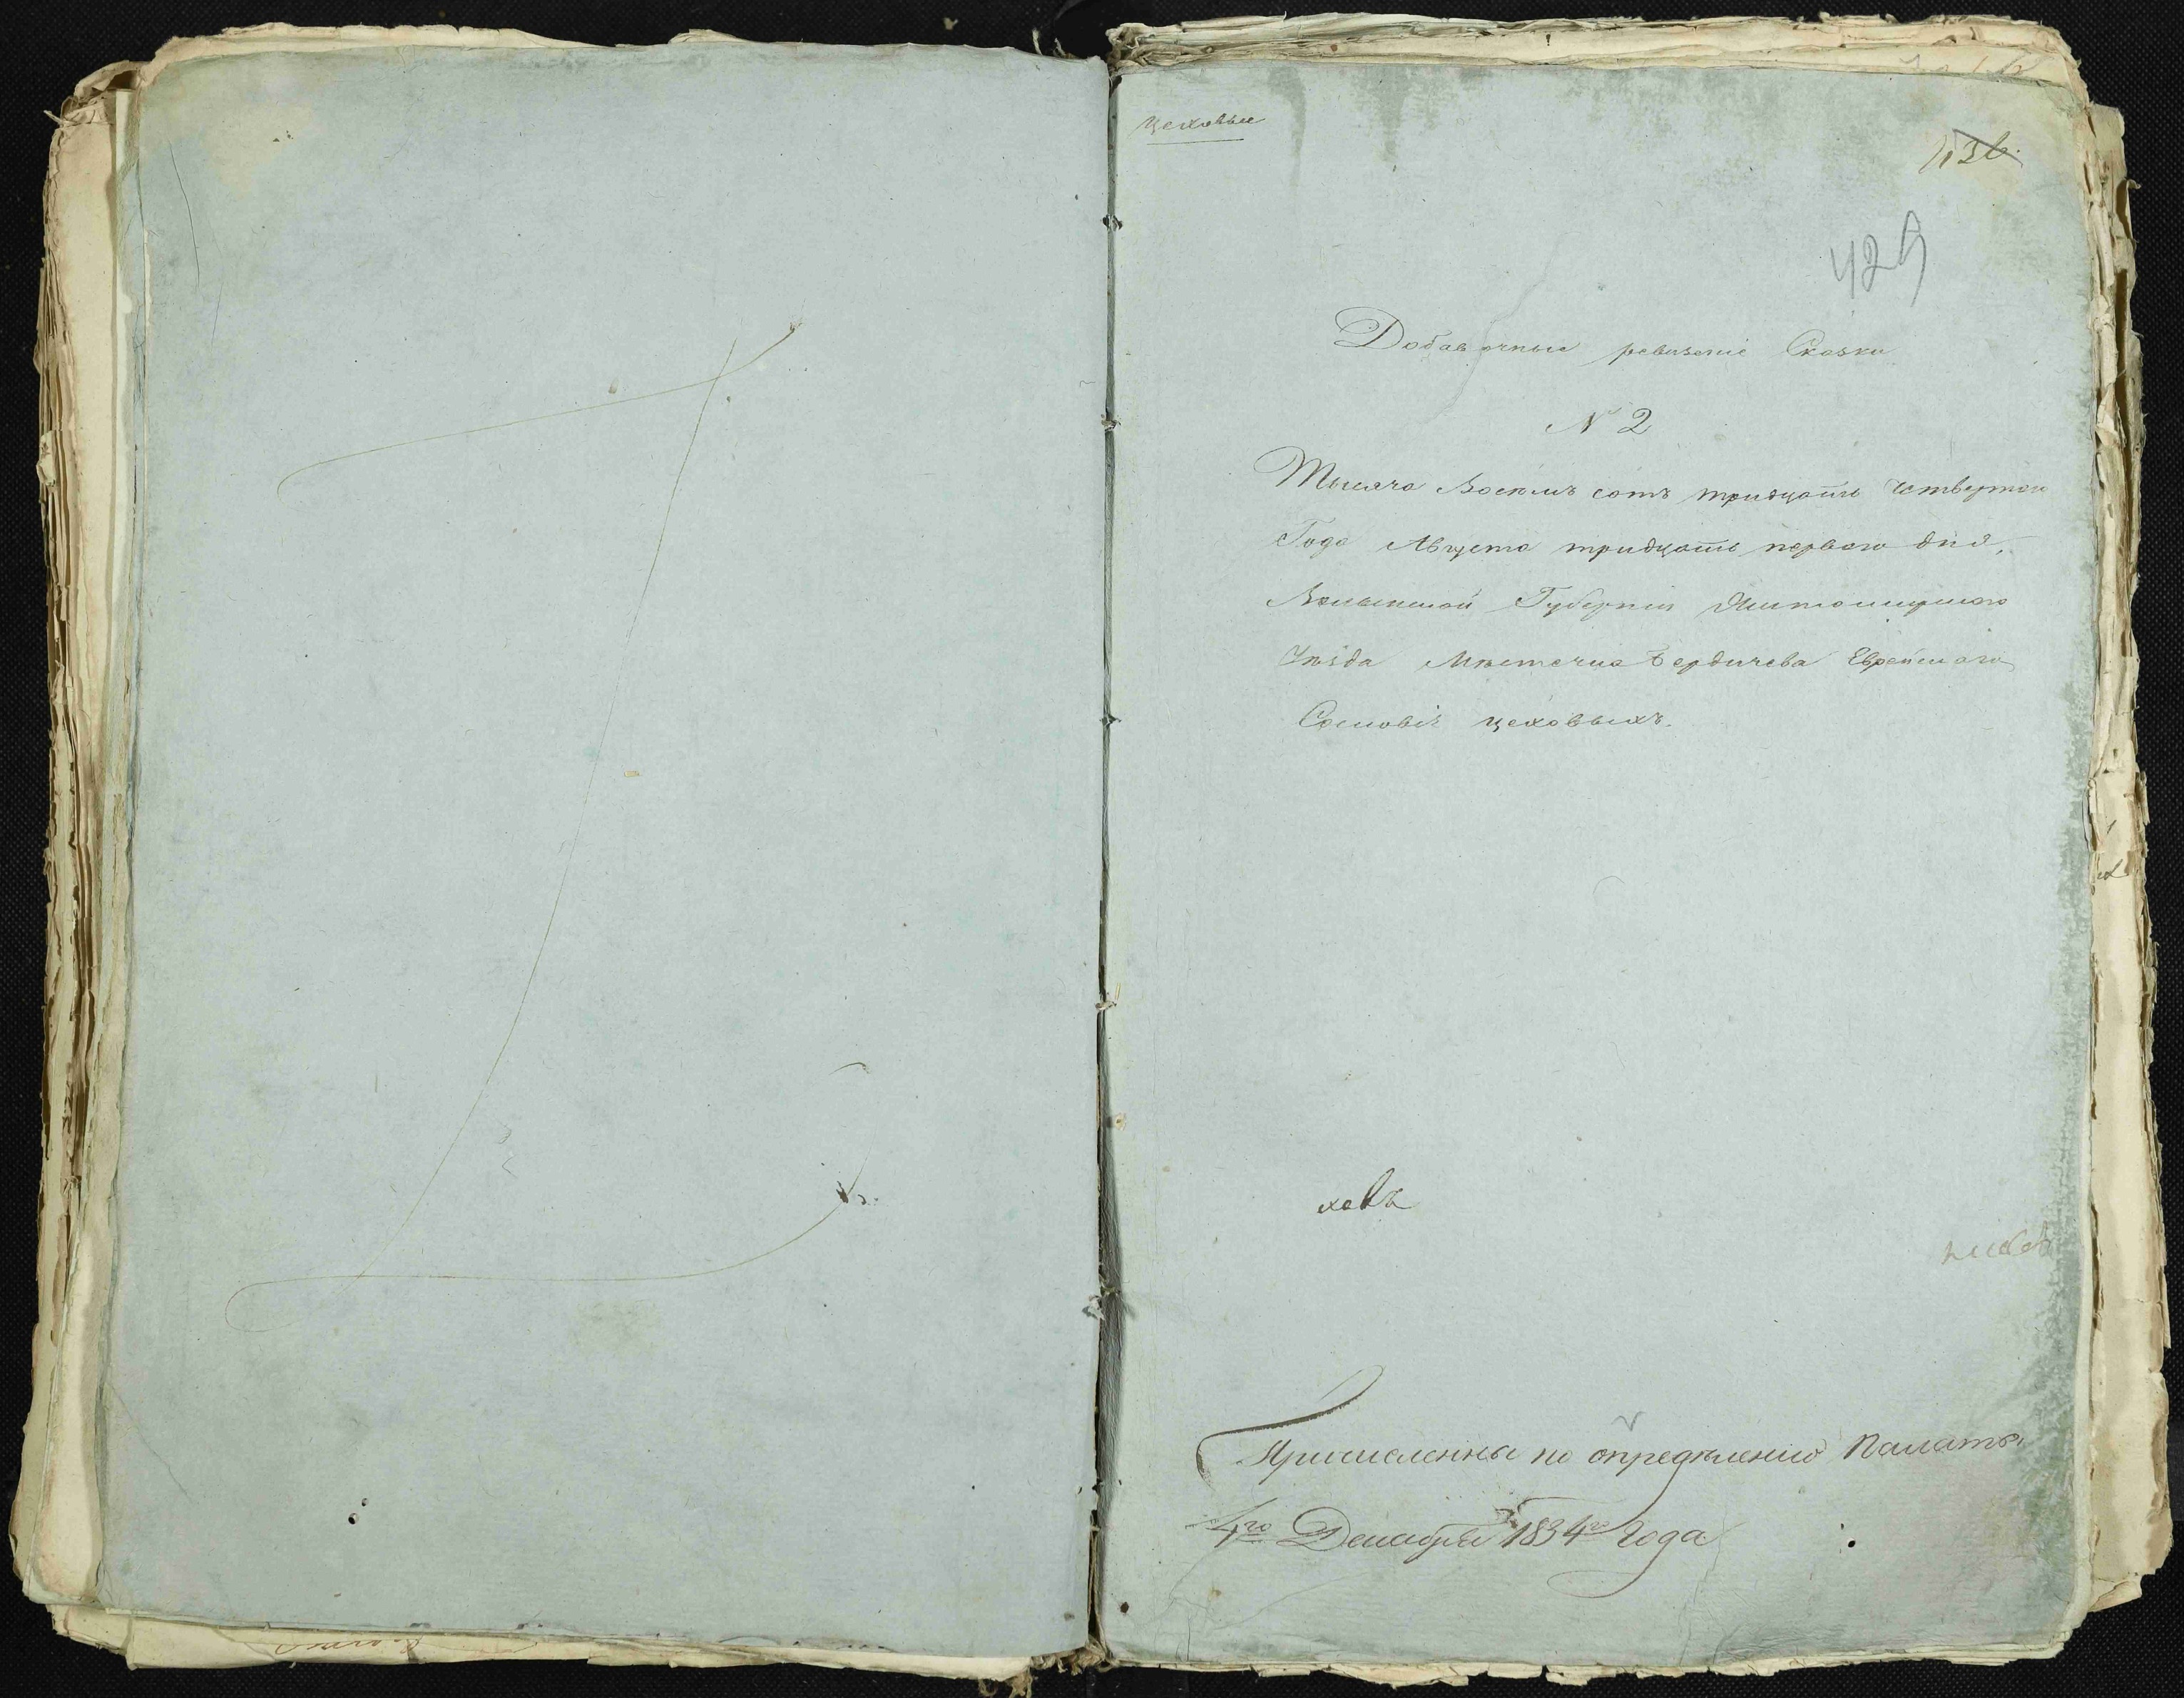 цеховые
136.
429
Добавочные ревизские Сказки
№ 2
Тысяча Восемъ сотъ тридцать четвертаго
Года Августа тридцать перваго дня,
Волынской Губерніи Житомирскаго
Уѣзда Мѣстечка Бердичева Еврейскаго
Сословія цеховыхъ.
Причисленны по опредѣленію Палаты
4го Декабря 1834го года